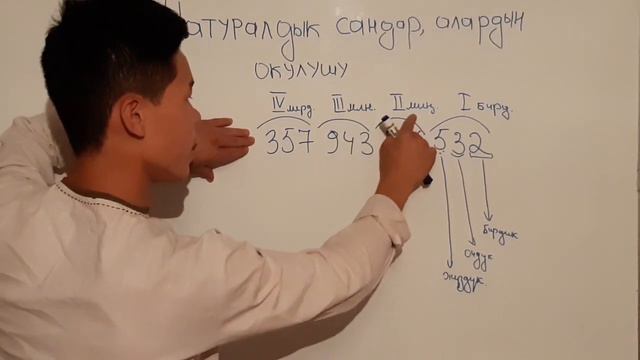 Натуралдык сандар, алардын
окулушу
IV млрд. III млн. II миң. I бирд.
357 943 532
бирдик
ондук
жүздүк